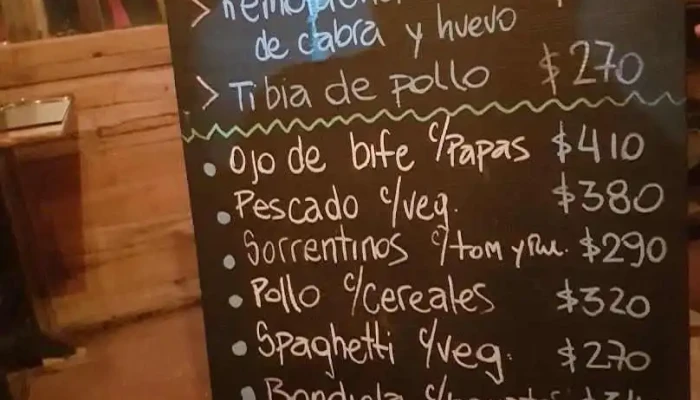 de cabra y huevo
> Tibia de pollo $270
• Ojo de bife c/Papas $410
• Pescado c/veg. $380
• Sorrentinos c/tom y $290
• Pollo c/cereales $320
• Spaghetti c/veg. $270
• Bondiola